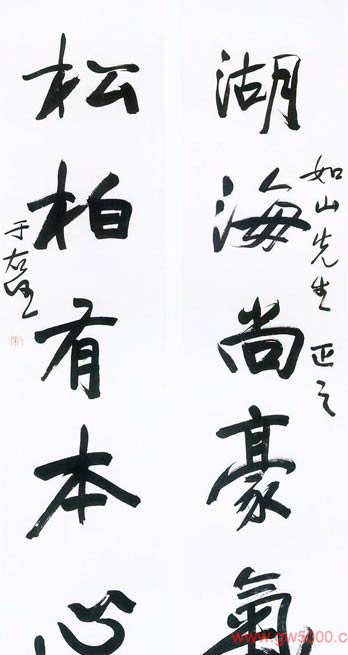 湖海尚豪氣
如山先生正之
松柏有本心
于右任
www.gw5000.co